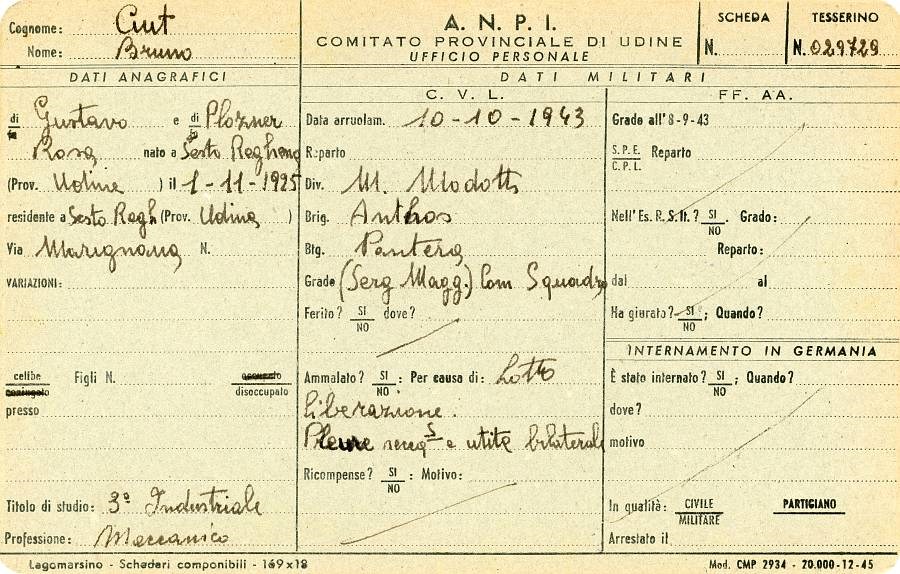 Cognome: Cut
Nome: Bruno
A. N. P. I.
COMITATO PROVINCIALE DI UDINE
UFFICIO PERSONALE
SCHEDA
N.
TESSERINO
N. 029729
DATI ANAGRAFICI
di Gustavo e di Plozner
Rosa nato a Sesto Reghena
(Prov. Udine ) il 1-11-1925
residente a Sesto Regh (Prov. Udine )
Via Marignana N.
VARIAZIONI:
celibe
coniugato
Figli N.
occupato
disoccupato
presso
Titolo di studio: 3ª Industriale
Professione: Meccanico
DATI MILITARI
C. V. L.
Data arruolam. 10-10-1943
Reparto
Div. M. Modotti
Brig. Anthos
Btg. Pantera
Grado (Serg Magg.) Com Squadra
Ferito? SI NO dove?
Ammalato? SI NO : Per causa di: Lotta
liberazione.
bilaterale
Ricompense? SI NO : Motivo:
FF. AA.
Grado all'8-9-43
S.P.E. C.P.L. Reparto
Nell'Es. R. S. It.? SI NO . Grado:
Reparto:
dal al
Ha giurato? SI NO ; Quando?
INTERNAMENTO IN GERMANIA
È stato internato? SI NO ; Quando?
dove?
motivo
In qualità: CIVILE MILITARE PARTIGIANO
Arrestato il
Lagomarsino - Schedari componibili - 169x18
Mod. CMP 2934 - 20.000-12-45